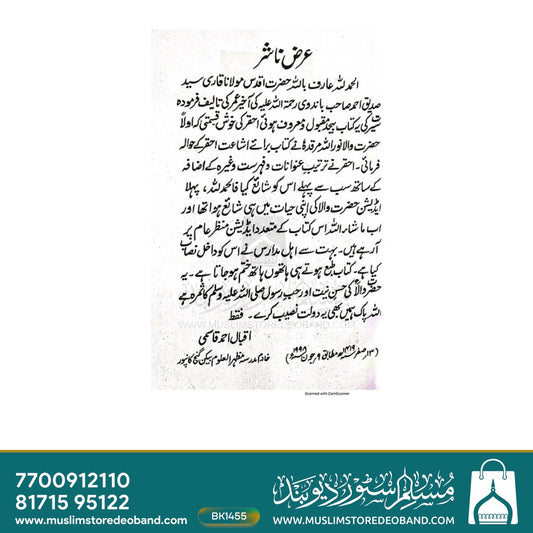 عرض ناشر
الحمد للہ عارف باللہ حضرت اقدس مولانا قاری سید
صدیق احمد صاحب باندوی رحمۃ اللہ علیہ کی اخیر عمر کی تالیف فرمودہ
سیرت کی یہ کتاب بیحد مقبول و معروف ہوئی احقر کی خوش قسمتی کہ اولاً
حضرت والا نور اللہ مرقدہٗ نے کتاب برائے اشاعت احقر کے حوالہ
فرمائی۔ احقر نے ترتیب عنوانات و فہرست وغیرہ کے اضافہ
کے ساتھ سب سے پہلے اس کو شائع کیا فالحمد للہ، پہلا
ایڈیشن حضرت والا کی اپنی حیات میں ہی شائع ہوا تھا اور
اب ماشاء اللہ اس کتاب کے متعدد ایڈیشن منظر عام پر
آ رہے ہیں۔ بہت سے اہل مدارس نے اس کو داخل نصاب
کیا ہے۔ کتاب طبع ہوتے ہی ہاتھوں ہاتھ ختم ہو جاتا ہے۔ یہ
حضرت والا کی حسن نیت اور حب رسول صلی اللہ علیہ وسلم کا ثمرہ ہے
اللہ پاک ہمیں بھی یہ دولت نصیب کرے۔ فقط
اقبال احمد قاسمی
(۱۳ صفر ۱۴۱۹ھ مطابق ۹ جون ۱۹۹۸ء) خادم مدرسہ مظہر العلوم بیکن گنج کانپور
WWW.MUSLIMSTOREDEOBAND.COM
Scanned with CamScanner
7700912110
81715 95122
www.muslimstoredeoband.com
BK1455
مسلم اسٹور دیوبند
WWW.MUSLIMSTOREDEOBAND.COM